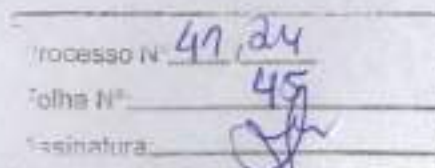 Processo Nº 41,24
Folha Nº: 45
Assinatura: